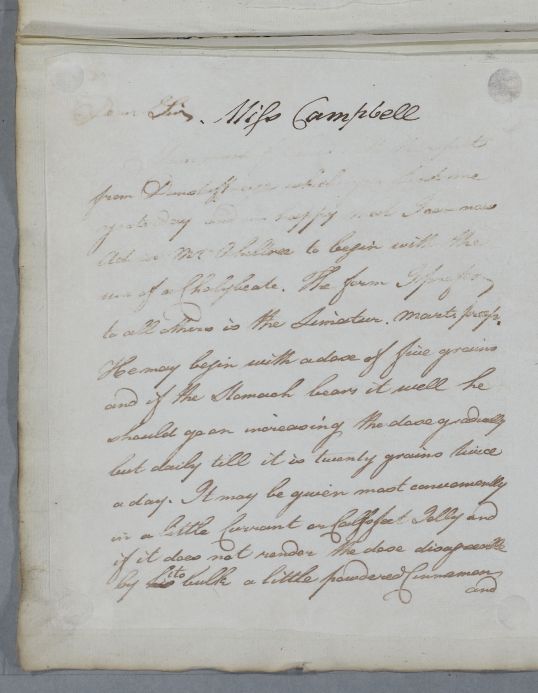 Dear Sir, Miss Campbell
from which you sent me
yesterday and am happy that I can now
advise Mr to begin with the
use of a Chalybeate. The form I prefer
to all others is the Limatur. Martis prep.
He may begin with a dose of five grains
and if the Stomach bears it well he
should go on increasing the dose gradually
but daily till it is twenty grains twice
a day. It may be given most conveniently
in a little Currant or Calfsfeet Jelly and
if it does not render the dose disagreeable
by its bulk a little powdered Cinnamon
and